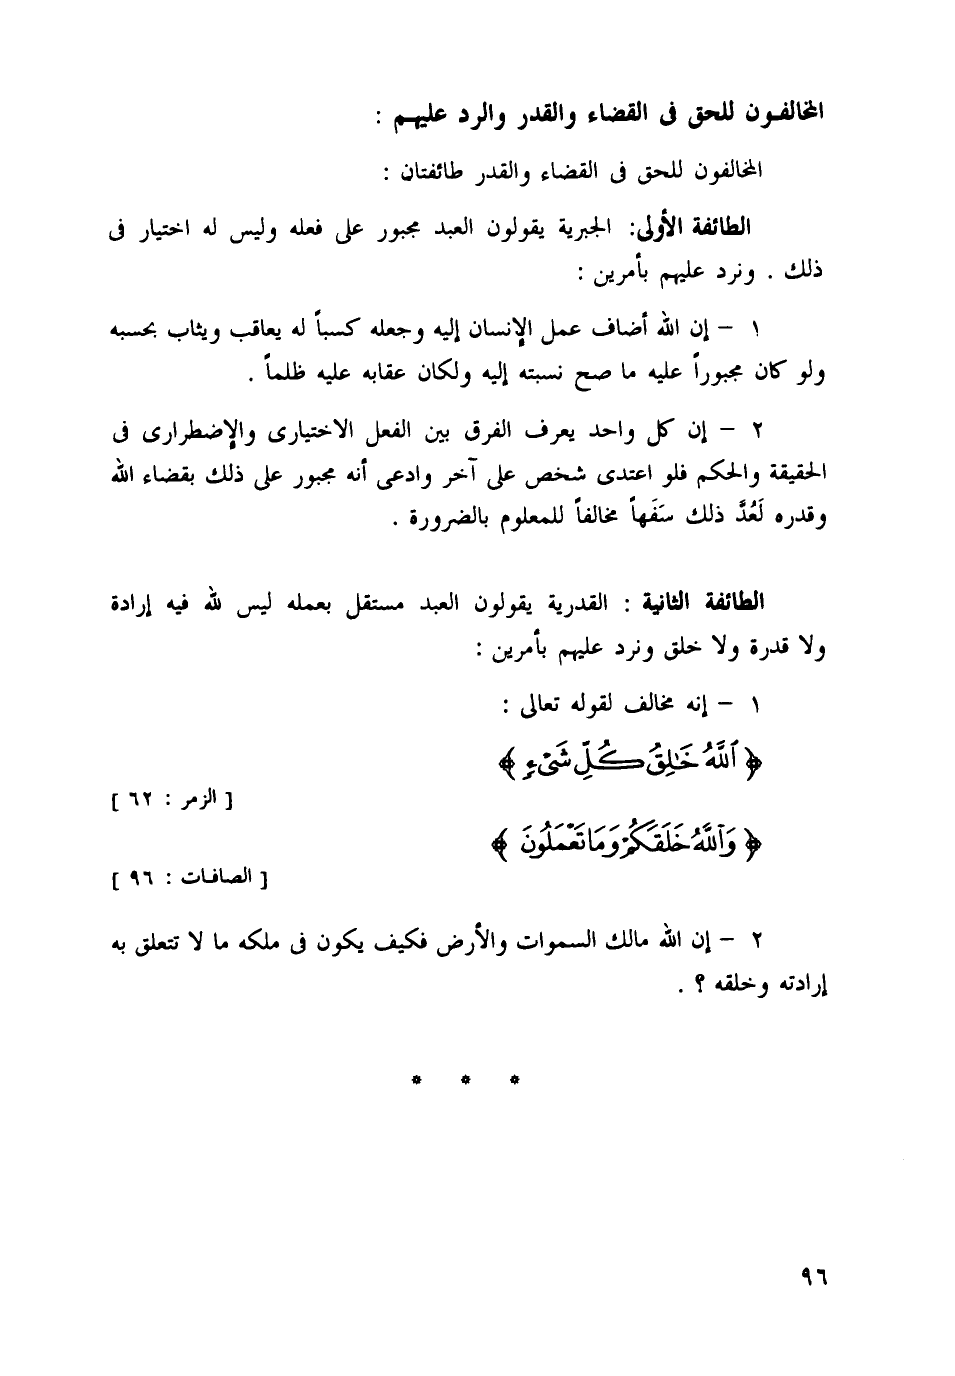 المخالفون للحق فى القضاء والقدر والرد عليهم :
المخالفون للحق فى القضاء والقدر طائفتان :
الطائفة الأولى: الجبرية يقولون العبد مجبور على فعله وليس له اختيار فى
ذلك . ونرد عليهم بأمرين :
١ – إن الله أضاف عمل الإنسان إليه وجعله كسباً له يعاقب ويثاب بحسبه
ولو كان مجبوراً عليه ما صح نسبته إليه ولكان عقابه عليه ظلماً .
٢ – إن كل واحد يعرف الفرق بين الفعل الاختيارى والإضطرارى فى
الحقيقة والحكم فلو اعتدى شخص على آخر وادعى أنه مجبور على ذلك بقضاء الله
وقدره لَعُدَّ ذلك سَفَهاً مخالفاً للمعلوم بالضرورة .
الطائفة الثانية : القدرية يقولون العبد مستقل بعمله ليس لله فيه إرادة
ولا قدرة ولا خلق ونرد عليهم بأمرين :
١ – إنه مخالف لقوله تعالى :
﴿ ٱللَّهُ خَٰلِقُ كُلِّ شَىْءٍ ﴾
[ الزمر : ٦٢ ]
﴿ وَٱللَّهُ خَلَقَكُمْ وَمَا تَعْمَلُونَ ﴾
[ الصافات : ٩٦ ]
٢ – إن الله مالك السموات والأرض فكيف يكون فى ملكه ما لا تتعلق به
إرادته وخلقه ؟ .
* * *
٩٦